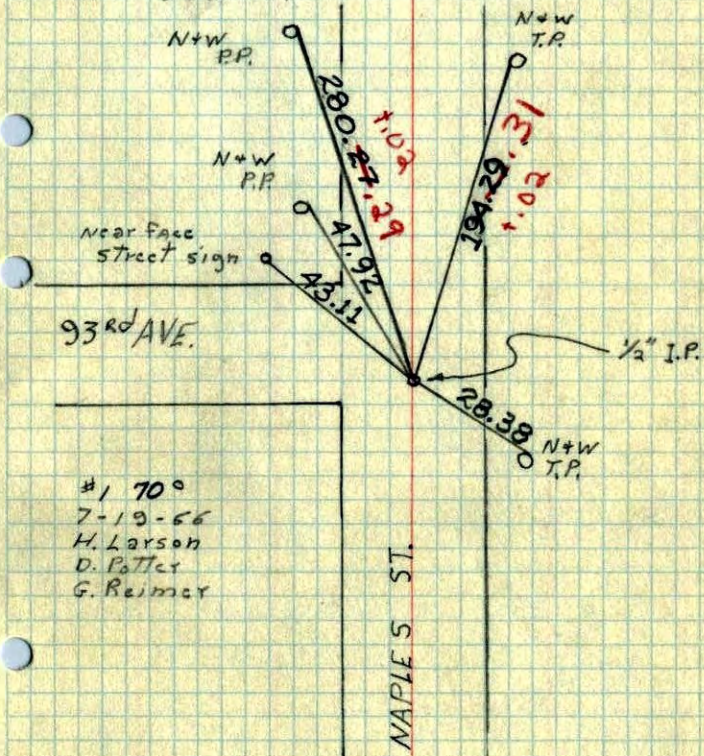 N+W
P.P.
N+W
T.P.
280.27
+.02
.29
194.29
.31
+.02
N+W
P.P.
47.92
Near face
street sign
43.11
93rd AVE.
1/2" I.P.
28.38
N+W
T.P.
#1 70°
7-19-66
H. Larson
D. Potter
G. Reimer
NAPLES ST.